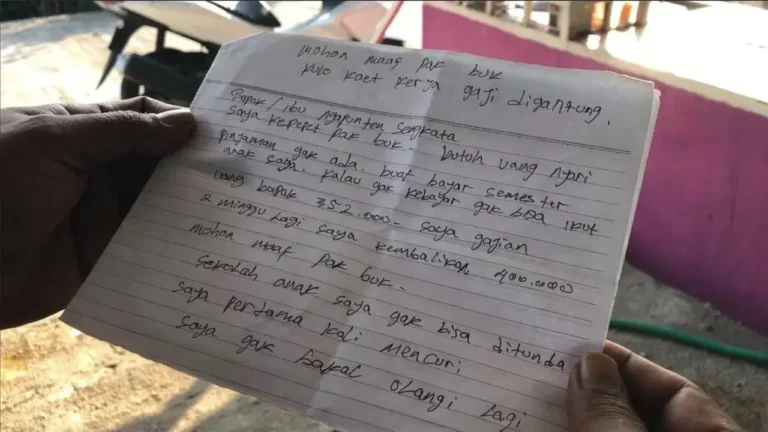 mohon maag pak buk
kulo kaet kerja gaji digantung.
Bapak / ibu ngapunten sengkata
saya kepepet pak buk. butuh uang nyari
pinjaman gak ada. buat bayar semester
anak saya. kalau gak kebayar gak bisa ikut
uang bapak 352.000 - saya gajian
2 minggu lagi saya kembalikan 400.000
mohon maaf pak buk.
sekolah anak saya gak bisa ditunda
saya pertama kali mencuri
saya gak bakal olangi lagi